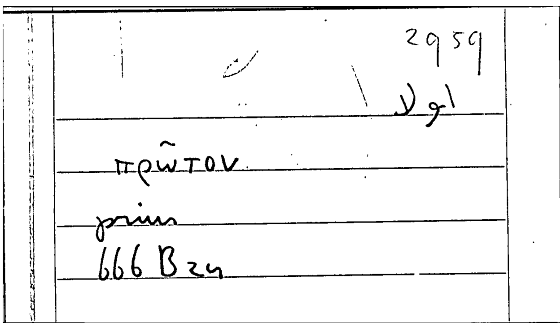 2959
Vgl
πρῶτον
prius
666 B 24